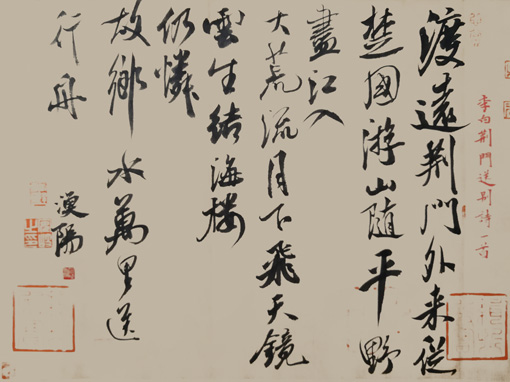 李白荆門送别詩一首
渡遠荆門外来從
楚國游山隨平野
盡江入
大荒流月下飛天鏡
雲生結海樓
仍憐
故鄉水萬里送
行舟